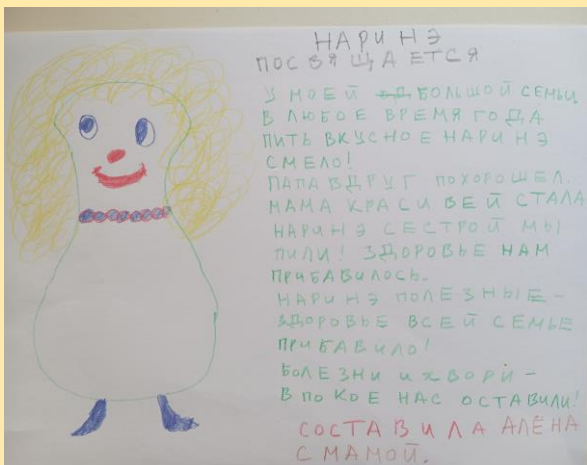 НАРИНЭ
ПОСВЯЩАЕТСЯ
У МОЕЙ БОЛЬШОЙ СЕМЬИ
В ЛЮБОЕ ВРЕМЯ ГОДА
ПИТЬ ВКУСНОЕ НАРИНЭ
СМЕЛО!
ПАПА ВДРУГ ПОХОРОШЕЛ.
МАМА КРАСИВЕЙ СТАЛА
НАРИНЭ СЕСТРОЙ МЫ
ПИЛИ! ЗДОРОВЬЕ НАМ
ПРИБАВИЛОСЬ.
НАРИНЭ ПОЛЕЗНЫЕ -
ЗДОРОВЬЕ ВСЕЙ СЕМЬЕ
ПРИБАВИЛО!
БОЛЕЗНИ И ХВОРИ -
В ПОКОЕ НАС ОСТАВИЛИ!
СОСТАВИЛА АЛЁНА
С МАМОЙ.